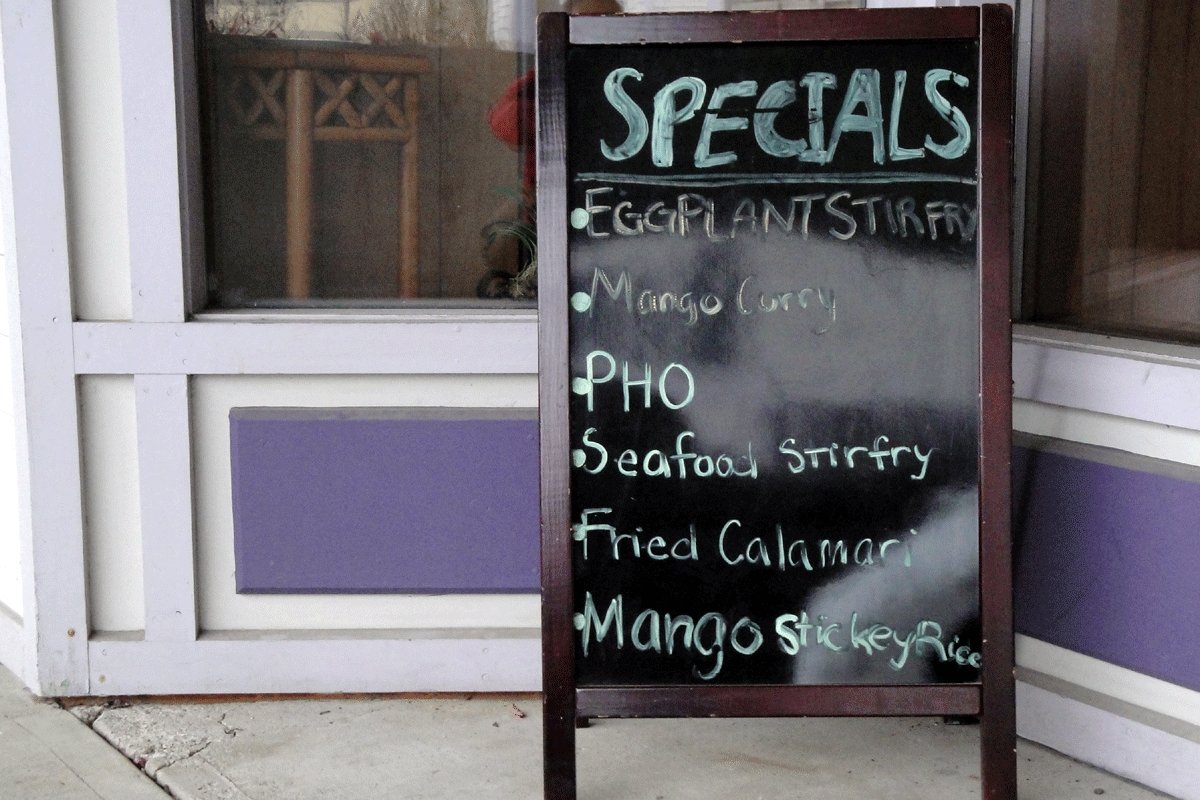 SPECIALS
EGGPLANT STIRFRY
Mango Curry
PHO
Seafood Stirfry
Fried Calamari
Mango Stickey Rice